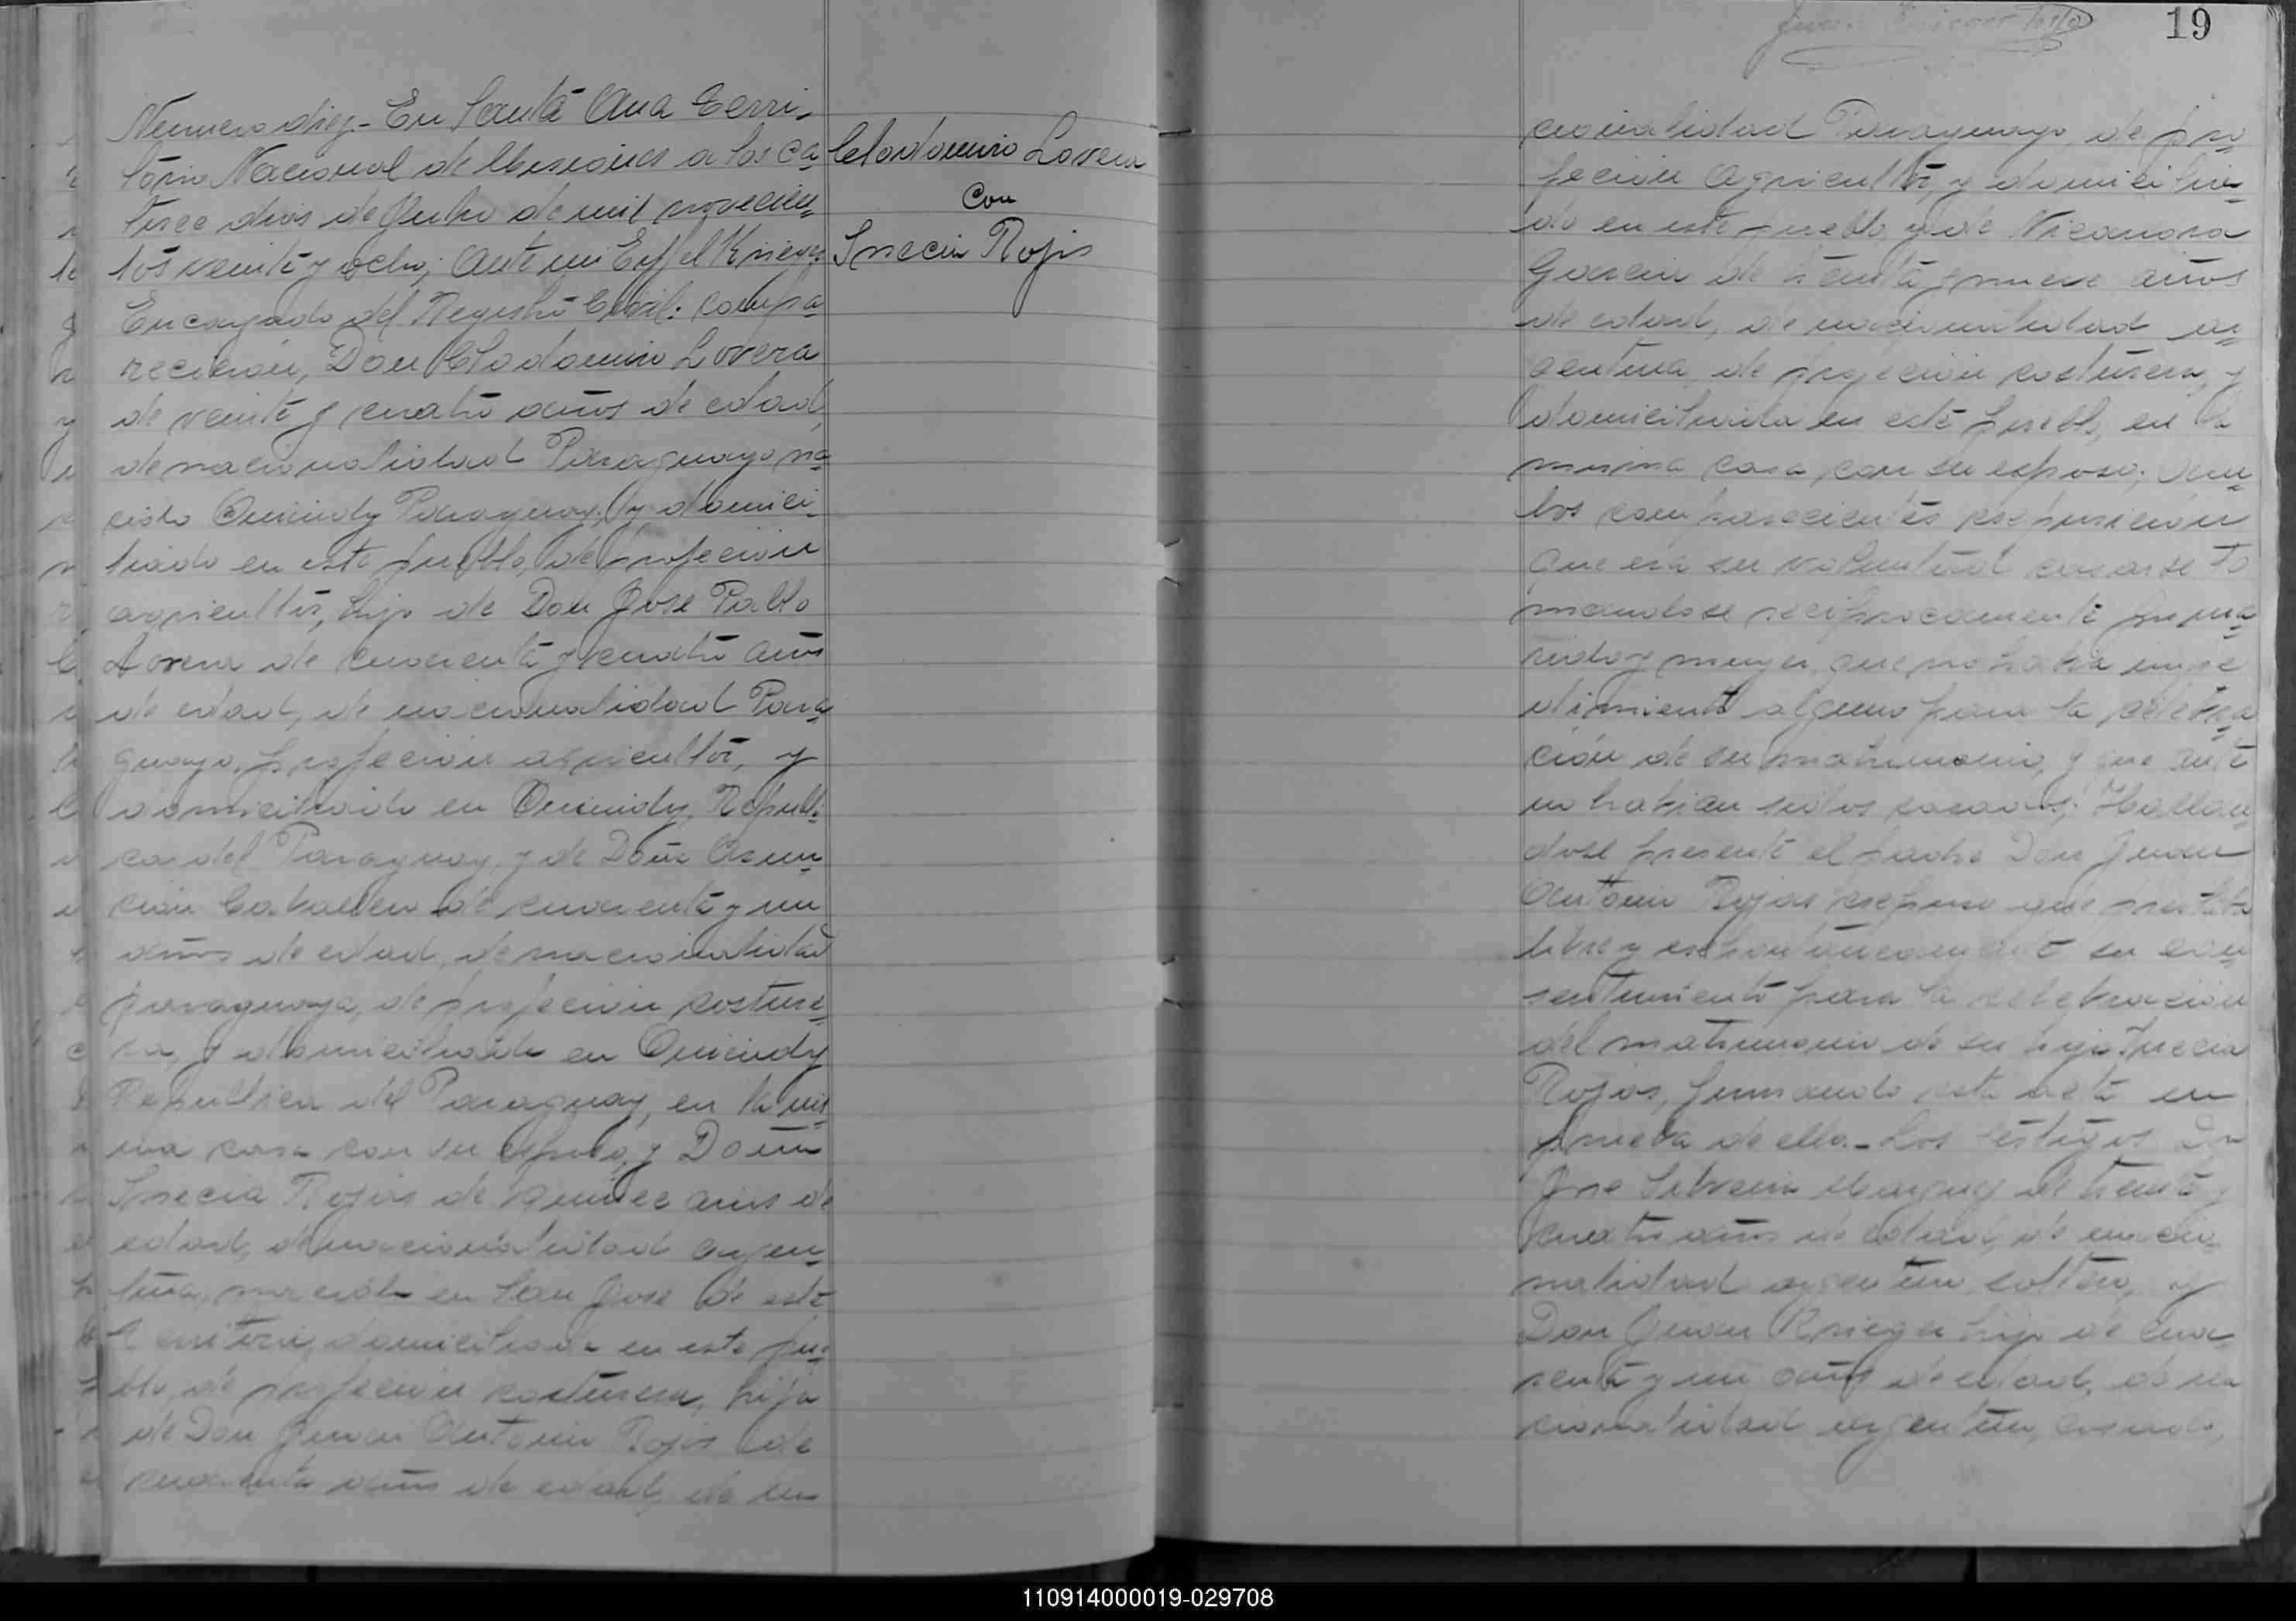 Numero diez - En Santa Ana Terri-
torio Nacional de Misiones a los ca-
torce dias de Julio de mil novecien-
tos veinte y ocho; Ante mi Eiffel Krieger
Encargado del Registro Civil: compa-
recieron, Don Clodomiro Lovera
de veinte y cuatro años de edad,
de nacionalidad Paraguayo, na-
cido Quiindy Paraguay, y domici-
liado en este pueblo, de profecion
agricultor, hijo de Don Jose Pablo
Lovera de cuarenta y cuatro años
de edad, de nacionalidad Para-
guayo, profecion agricultor, y
domiciliado en Quiindy, Republi-
ca del Paraguay, y de Doña Asun-
cion Caballero de cuarenta y un
años de edad, de nacionalidad
paraguaya, de profecion costure-
ra, y domiciliada en Quiindy
Republica del Paraguay, en la mis-
ma casa con su esposo, y Doña
Rojas de quince años de
edad, de nacionalidad argen-
tina, nacida en San Jose de este
Territorio, domiciliada en este pue-
blo, de profecion costurera, hija
de Don Juan Antonio Rojas de
cuarenta años de edad, de na
Clodomiro Lovera
Con
Rojas
19
cionalidad Paraguayo, de pro-
fecion Agricultor, y domicilia-
do en este pueblo, y de Nicanora
Garcia de treinta y nueve años
de edad, de nacionalidad ar-
gentina, de profecion costurera, y
domiciliada en este pueblo, en la
misma casa con su esposo; Am-
bos comparecientes expusieron
que era su voluntad casarse to
mandose reciprocamente por ma-
rido y muger, que no habia impe
dimento alguno para la celebra-
ción de su matrimonio, y que ante
no habian sidos casados; Hallan-
dose presente el padre Don Juan
Antonio Rojas expuso que prestaba
libre y espontaneamente su con-
sentimiento para la celebracion
del matrimonio de su hija
Rojas, firmando esta acta en
prueba de ello. - Los testigos Don
Jose Silverio Marquez de treinta y
cuatro años de edad, de nacio-
nalidad argentino, soltero, y
Don Juan Krieger hijo de cua-
renta y un años de edad, de na
cionalidad argentino, casado,
110914000019-029708